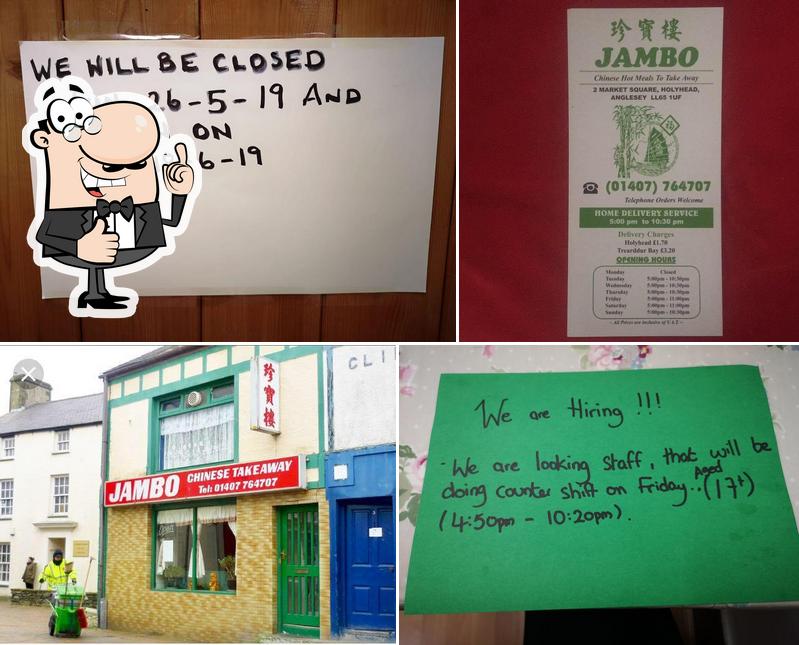 WE WILL BE CLOSED
26-5-19 AND
ON
6-19
珍寶樓
JAMBO
Chinese Hot Meals To Take Away
2 MARKET SQUARE, HOLYHEAD,
ANGLESEY LL65 1UF
(01407) 764707
Telephone Orders Welcome
HOME DELIVERY SERVICE
5:00 pm to 10:30 pm
Delivery Charges
Holyhead £1.70
Trearddur Bay £3.20
OPENING HOURS
Monday Closed
Tuesday 5:00pm - 10:30pm
Wednesday 5:00pm - 10:30pm
Thursday 5:00pm - 10:30pm
Friday 5:00pm - 11:00pm
Saturday 5:00pm - 11:00pm
Sunday 5:00pm - 10:30pm
~ All Prices are inclusive of V.A.T ~
珍寶樓
CLI
JAMBO CHINESE TAKEAWAY
Tel: 01407 764707
We are Hiring !!!
We are looking staff, that will be
doing counter shift on Friday.. Aged (17+)
(4:50pm - 10:20pm).